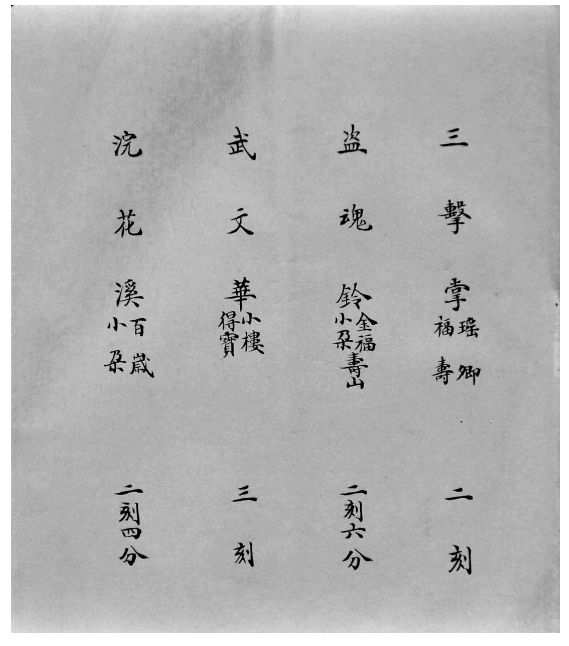 三擊掌
瑶卿
福壽
二刻
盗魂鈴
金福
小朶
壽山
二刻六分
武文華
小樓
得寳
三刻
浣花溪
百歲
小朶
二刻四分